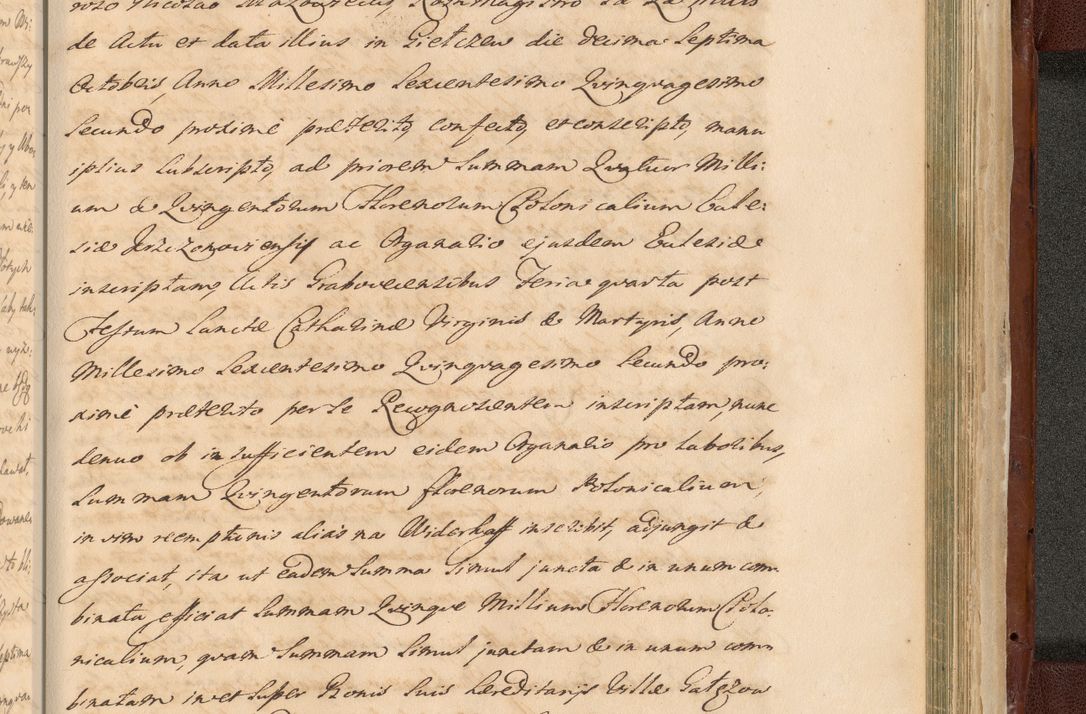 de Actu et data illius in Gielczew die decima Septima
Octobris, Anno Millesimo Sexcentesimo Qvinqvagesimo
Secundo proximè præterito, confecto, et conscripto, manu
ipsius subscripto, ad priorem Summam Qvatuor Milli:
um & Qvingentorum Florenorum Polonicalium Eccle:
siæ Krzczonoviensis ac Organario ejusdem Eclesiæ
inscriptam, Actis Grabovecensibus Feria qvarta post
Festum Sanctæ Catharinæ Virginis & Martyris, Anno
Millesimo Sexcentesimo Qvinqvagesimo Secundo pro:
ximè præterito per se Recognoscentem inscriptam, nunc
denuo ob insufficientem eidem Organario pro laboribus,
Summam Qvingentorum florenorum Polonicalium,
in vim reemptionis aliàs na Widerkaff inscribit, adjungit &
associat, ita ut eadem Summa simul juncta & in unum com
binata, efficiat Summam Qvinqve Millium Florenorum Polo,
nicalium, qvam Summam simul junctam & in unum com
binatam in et super Bonis suis hæreditarijs Villæ Gałęzow